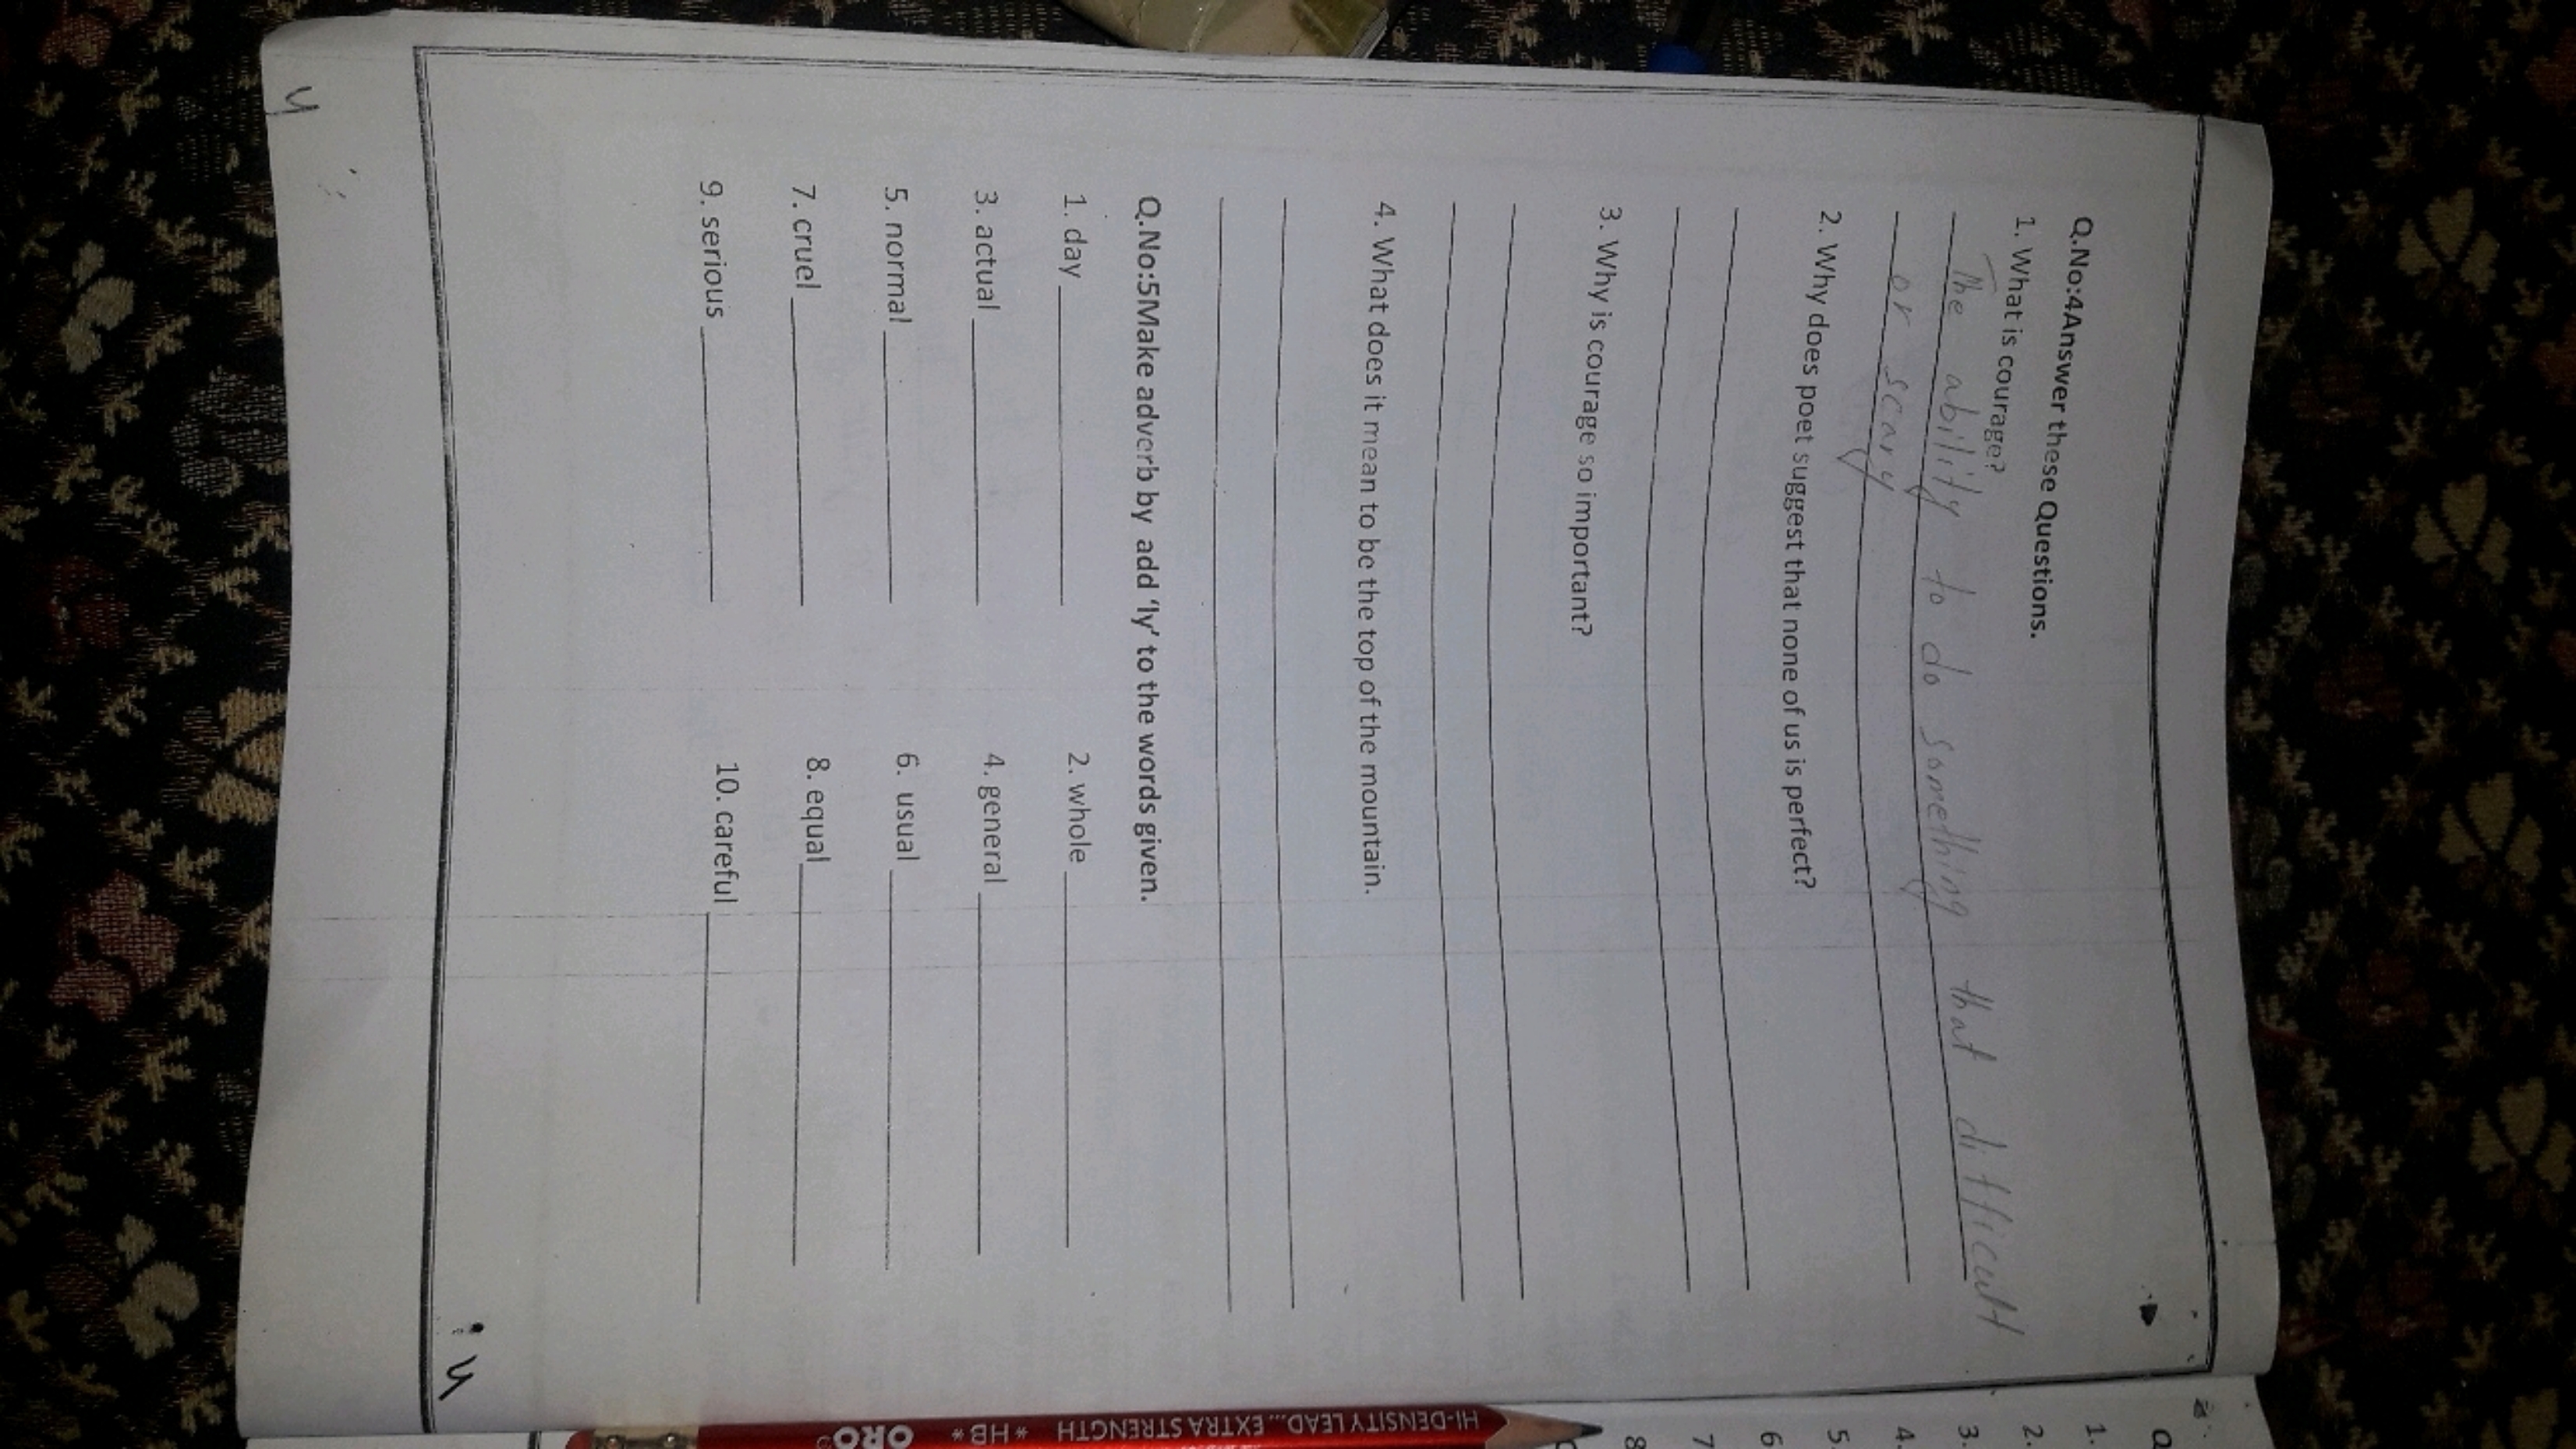 Q.No:4Answer these Questions.
1. What is courage?
The ability to do something that difficult
or scary
2. Why does poet suggest that none of us is perfect?
3. Why is courage so important?
4. What does it mean to be the top of the mountain.
Q.No:5Make adverb by add 'ly' to the words given.
1. day 2. whole
3. actual 4. general
5. normal 6. usual
7. cruel 8. equal
9. serious 10. careful
HI-DENSITY LEAD...EXTRA STRENGTH *HB* ORO
Q
1.
2.
3.
4.
5.
6
7
8